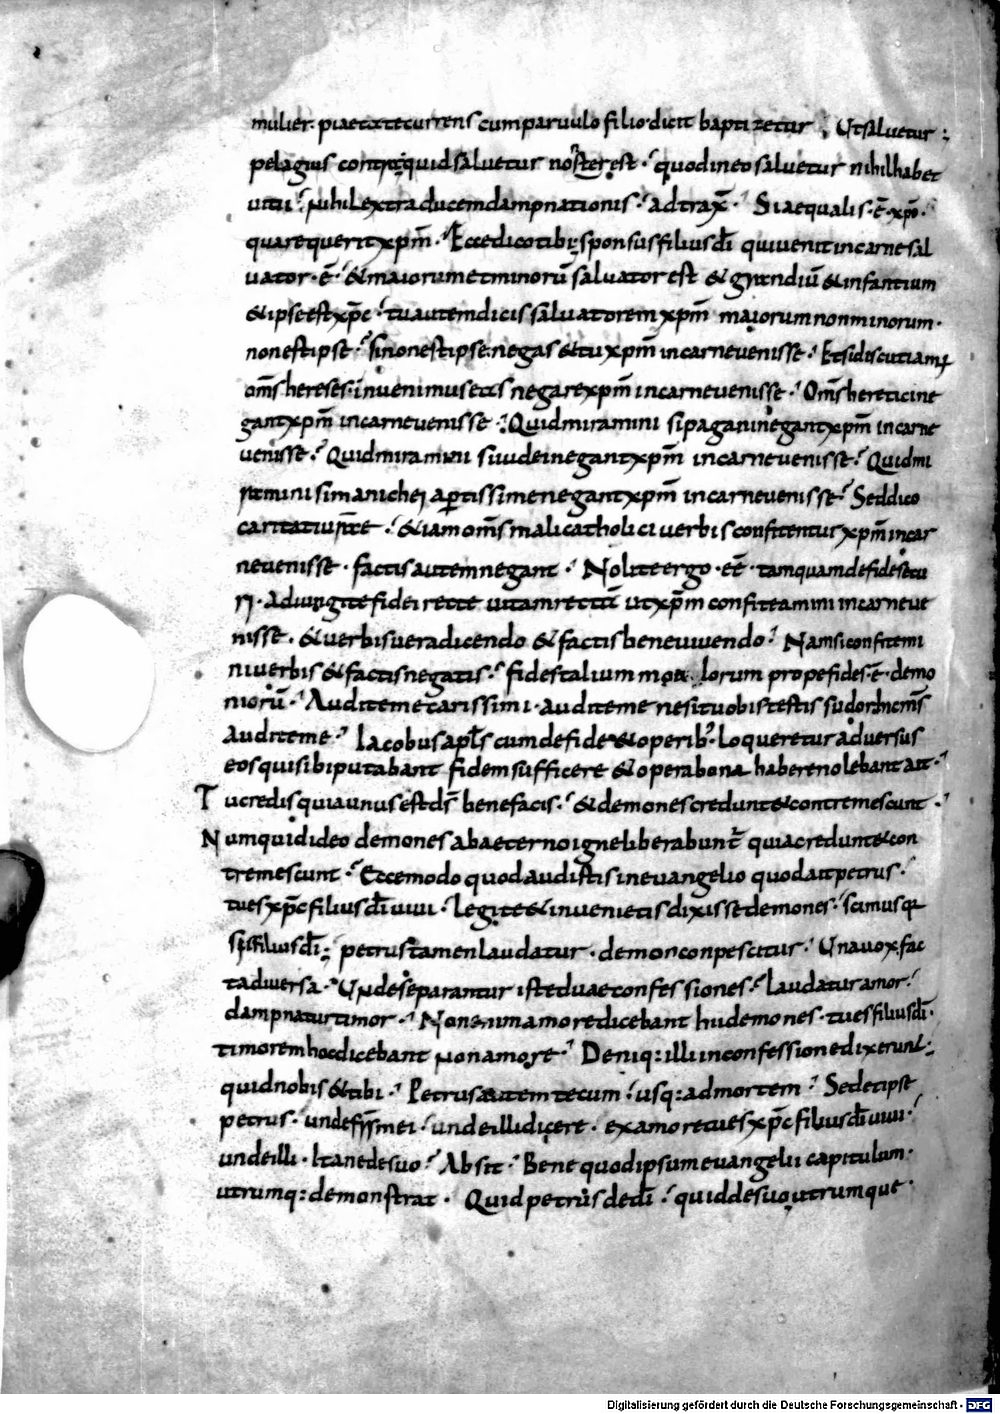 mulier. piaetatecurrens cumparuulo filio. dicit baptizetur. Utsaluetur;
pelagius contra quid saluetur noster est. quodineo saluetur nihilhabet
uitii. Nihil extraducemdampnationis. adtrax̄. Siaequalis. ē. xp̄o.
quarequeritxpm̄. Eccedicotibi; sponsusfiliusdī quiuenitincarnesal
uator. ē. &maiorumetminorū saluator est & grandiū &infantium
&ipseestxp̄c. tuautemdicis saluatoremxpm̄ maiorumnonminorum.
nonestipse. sinonestipse. negas &tuxpm̄ incarneuenisse. Etsidiscutiam;
om̄s hereses. inuenimuseas negarexpm̄ incarneuenisse. Om̄s hereticine
gantxpm̄ incarneuenisse. Quidmiramini sipaganinegantxpm̄ incarne
uenisse. Quidmiramini siiudeinegantxpm̄ incarneuenisse. Quidmi
ramini simanichei aptissimenegantxpm̄ incarneuenisse. Seddico
caritatiur̄e. &iamom̄s malicatholici uerbis confitenturxpm̄incar
neuenisse. factisautemnegant. Noliteergo. eē. tamquamdefidesecu
ri. Adiungitefideirecte uitamrectā utxpm̄ confiteamini incarneue
nisse. &uerbisueradicendo &factisbeneuiuendo. Namsiconfitemi
niuerbis &factisnegatis. fidestalium malorum propefides. ē. demo
niorū. Auditemecarissimi. auditeme nesituobistestis sudorhicm̄s
auditeme. Iacobusapl̄s cumdefide&operib; loqueretur aduersus
eosquisibiputabant fidemsufficere &operabona haberenolebantait.
Tucredisquiaunusestds̄ benefacis. &demonescredunt&contremescunt.
Numquidideo demones abaeternoigneliberabunt̄ quiacredunt&con
tremescunt. Eccemodo quodaudistis ineuangelio quodaitpetrus.
tuesxp̄cfiliusdīuiui. legite&inuenietis dixissedemones. scimusq
sisfiliusdī; petrustamenlaudatur. demonconpescitur. Unauox. fac
tadiuersa. Undeseparantur istaeduaeconfessiones. laudaturamor.
dampnaturtimor. Nonenimamoredicebant hudemones. tuesfiliusdī.
timoremhocdicebant nonamore. Deniq: illiinconfessionedixerunt;
quidnobis&tibi. Petrusautemtecum. usq: admortem. Sedetipse
petrus. undefr̄smei. undeillidicere. examoretuesxp̄cfiliusdīuiui.
undeilli. Itanedesuo. Absit. Bene quodipsumeuangelii capitulum.
utrumq: demonstrat. Quidpetrus dedī. quiddesuoutrumque.
Digitalisierung gefördert durch die Deutsche Forschungsgemeinschaft - DFG